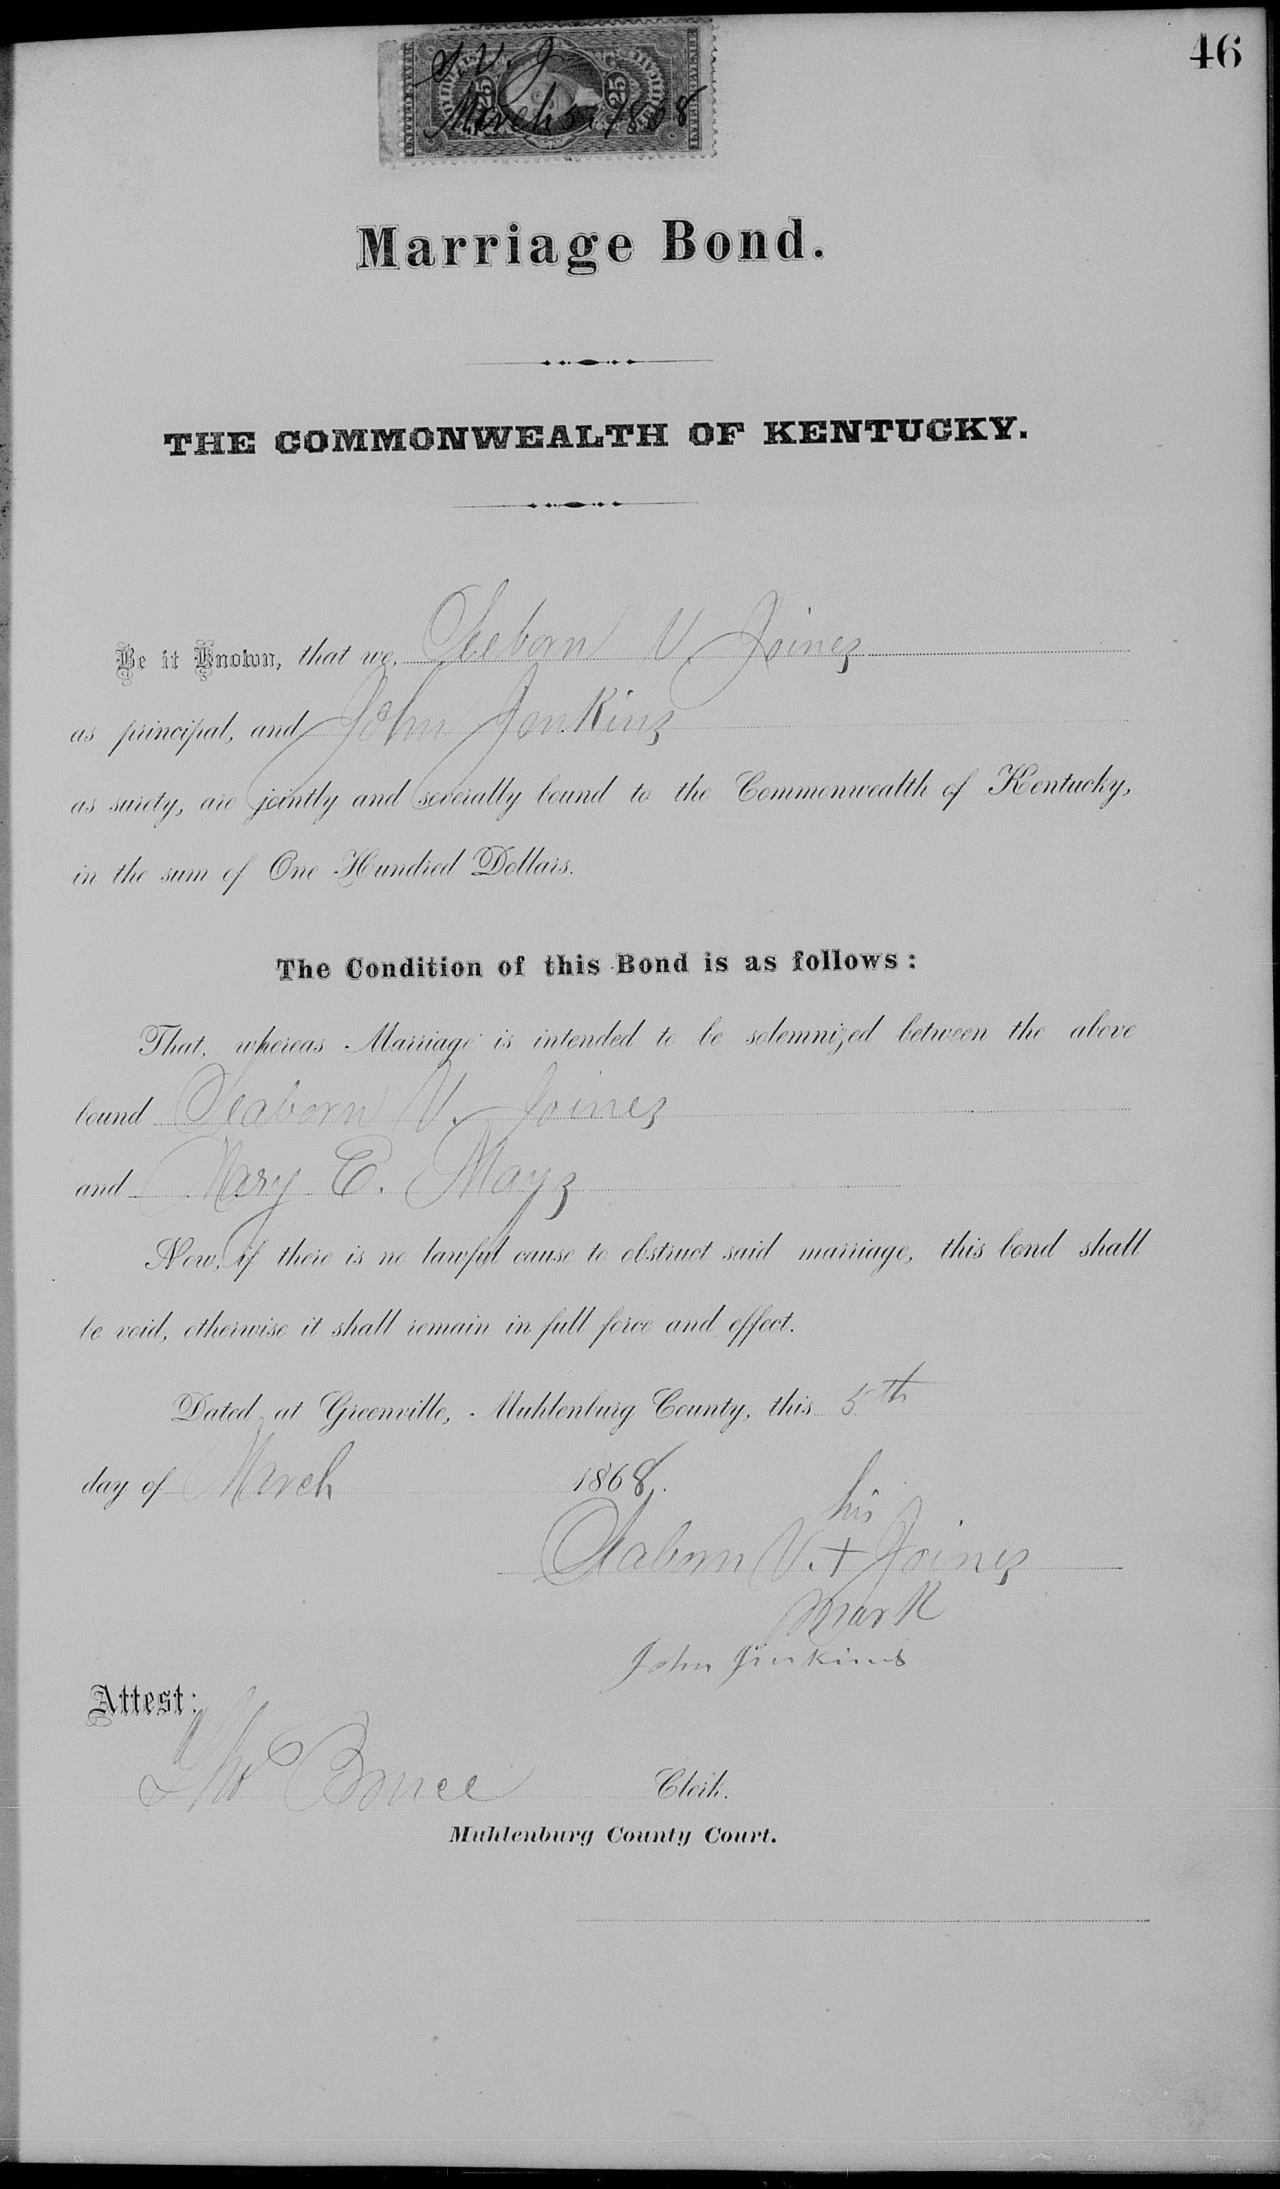 46
UNITED STATES
INTER. REVENUE
25 25
S. V. J
March 5, 1868
Marriage Bond.
THE COMMONWEALTH OF KENTUCKY.
Be it Known, that we, Seeborn V. Joines
as principal, and John Jenkins
as surety, are jointly and severally bound to the Commonwealth of Kentucky,
in the sum of One Hundred Dollars.
The Condition of this Bond is as follows:
That, whereas Marriage is intended to be solemnized between the above
bound Seaborn V. Joines
and Mary E. Mays
Now, if there is no lawful cause to obstruct said marriage, this bond shall
be void, otherwise it shall remain in full force and effect.
Dated at Greenville, Muhlenburg County, this 5th
day of March 1868.
his
Seaborn V. + Joines
mark
John Jinkins
Attest:
Tho Bruce Clerk.
Muhlenburg County Court.